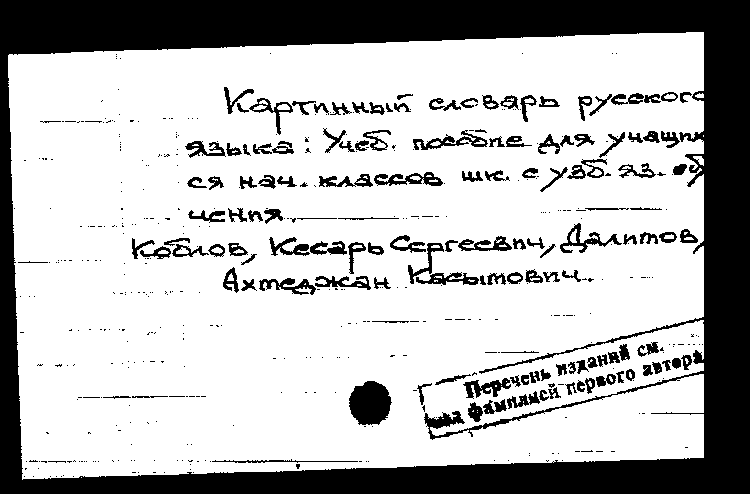 Картинный словарь русского
языка: Учеб. пособие для учащих
ся нач. классов шк. с узб. яз. об
учения.
Коблов, Кесарь Сергеевич, Далимов,
Ахмеджан Касымович.
Перечень изданий см.
под фамилией первого автора